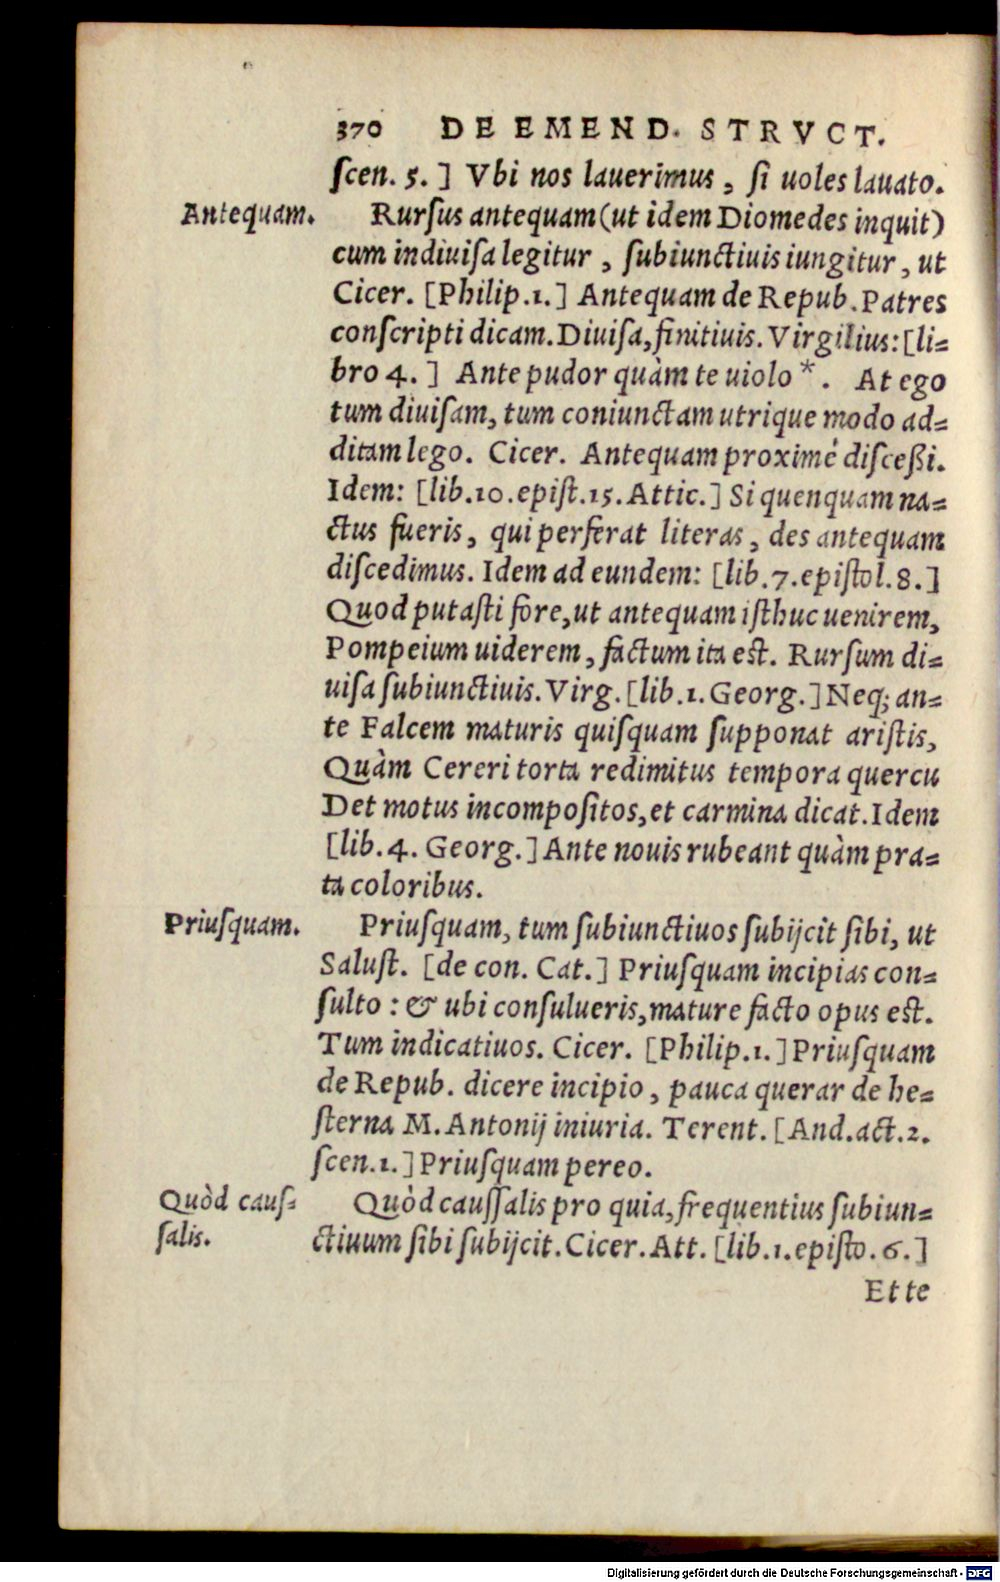 370 DE EMEND. STRVCT.
ſcen. 5. ] Vbi nos lauerimus, ſi uoles lauato.
Antequam. Rurſus antequam (ut idem Diomedes inquit)
cum indiuiſa legitur, ſubiunctiuis iungitur, ut
Cicer. [Philip.1.] Antequam de Repub. Patres
conſcripti dicam. Diuiſa, finitiuis. Virgilius: [li=
bro 4. ] Ante pudor quàm te uiolo *. At ego
tum diuiſam, tum coniunctam utrique modo ad=
ditam lego. Cicer. Antequam proximè diſceßi.
Idem: [lib.10.epiſt.15.Attic.] Si quenquam na=
ctus fueris, qui perferat literas, des antequam
diſcedimus. Idem ad eundem: [lib.7.epiſtol.8.]
Quod putaſti fore, ut antequam iſthuc uenirem,
Pompeium uiderem, factum ita est. Rurſum di=
uiſa ſubiunctiuis. Virg. [lib.1.Georg.] Neq; an=
te Falcem maturis quiſquam ſupponat ariſtis,
Quàm Cereri torta redimitus tempora quercu
Det motus incompoſitos, et carmina dicat. Idem
[lib.4. Georg.] Ante nouis rubeant quàm pra=
ta coloribus.
Priuſquam. Priuſquam, tum ſubiunctiuos ſubijcit ſibi, ut
Saluſt. [de con. Cat.] Priuſquam incipias con=
ſulto : & ubi conſulueris, mature facto opus est.
Tum indicatiuos. Cicer. [Philip.1.] Priuſquam
de Repub. dicere incipio, pauca querar de he=
ſterna M. Antonij iniuria. Terent. [And.act.2.
ſcen.1.] Priuſquam pereo.
Quòd cauſ= Quòd cauſſalis pro quia, frequentius ſubiun=
ſalis. ctiuum ſibi ſubijcit. Cicer. Att. [lib.1.epiſto.6.]
Et te
Digitalisierung gefördert durch die Deutsche Forschungsgemeinschaft - DFG